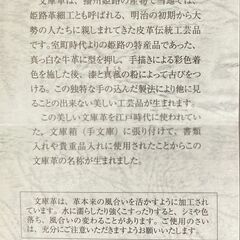 文庫革は、播州姫路の産物で当地では、
姫路革細工とも呼ばれる、明治の初期から大勢
の人たちに親しまれてきた皮革伝統工芸品
です。室町時代よりの姫路の特産であった、
真っ白な牛革に型を押し、手描きによる彩色着
色を施した後、漆と真菰の粉によって古びをつ
ける。この独特な手の込んだ製法により他に見
ることの出来ない美しい工芸品が生まれます。
この美しい文庫革を江戸時代に使われていた、
文庫箱（手文庫）に張り付けて、書類
入れや貴重品入れに使用されたことからこの
文庫革の名称が生まれました。
文庫革は、革本来の風合いを活かすように加工され
ています。水に濡らしたり強くこすったりすると、シミや色
落ち、風合いの変わることがあります。ご使用のさい
は、充分にご注意いただきますようお願いいたします。